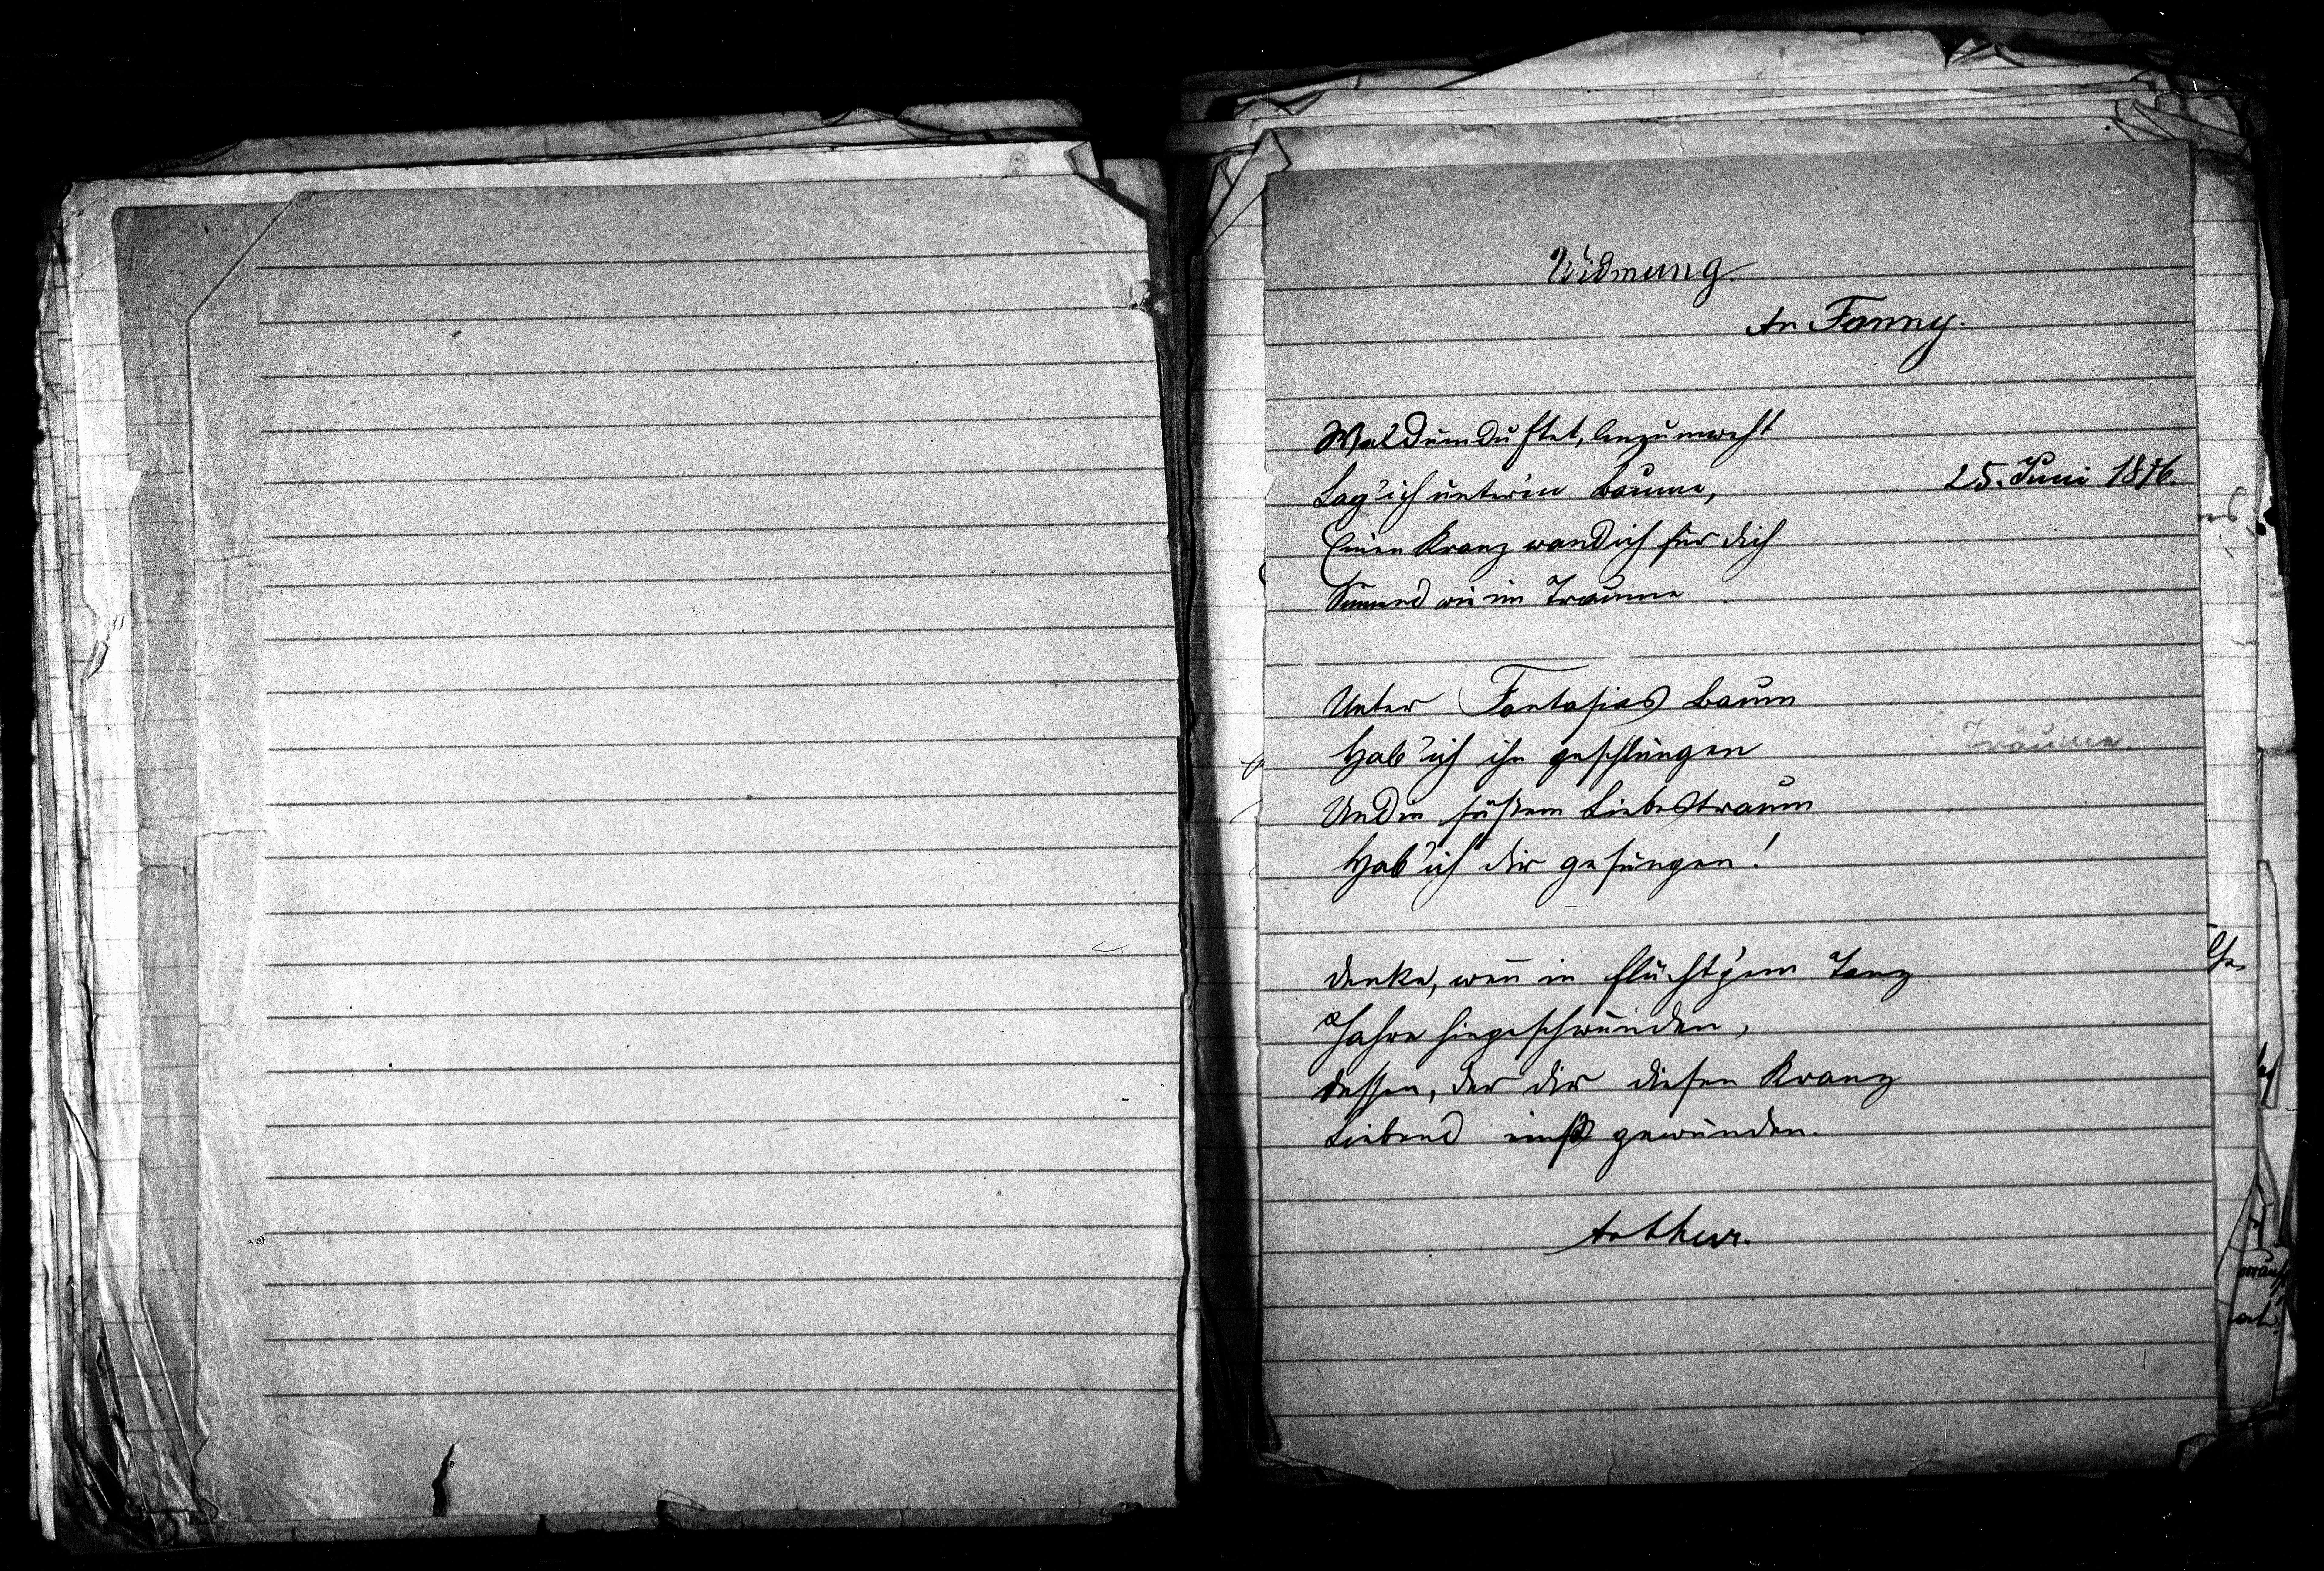 Widmung.
An Fanny.
Waldumduftet, lenzumweht
Lag' ich unter'm Baume,
25. Juni 1876.
Einen Kranz wand ich für dich
Sinnend wie im Traume.
Unter Fantasias Baum
Hab' ich ihn geschlungen
Träumen.
Und in süßem Liebestraum
Hab' ich dir gesungen!
Denke, wenn in flücht'gem Tanz
Jahre hingeschwunden,
Dessen, der dir diesen Kranz
Liebend einst gewunden.
Arthur.